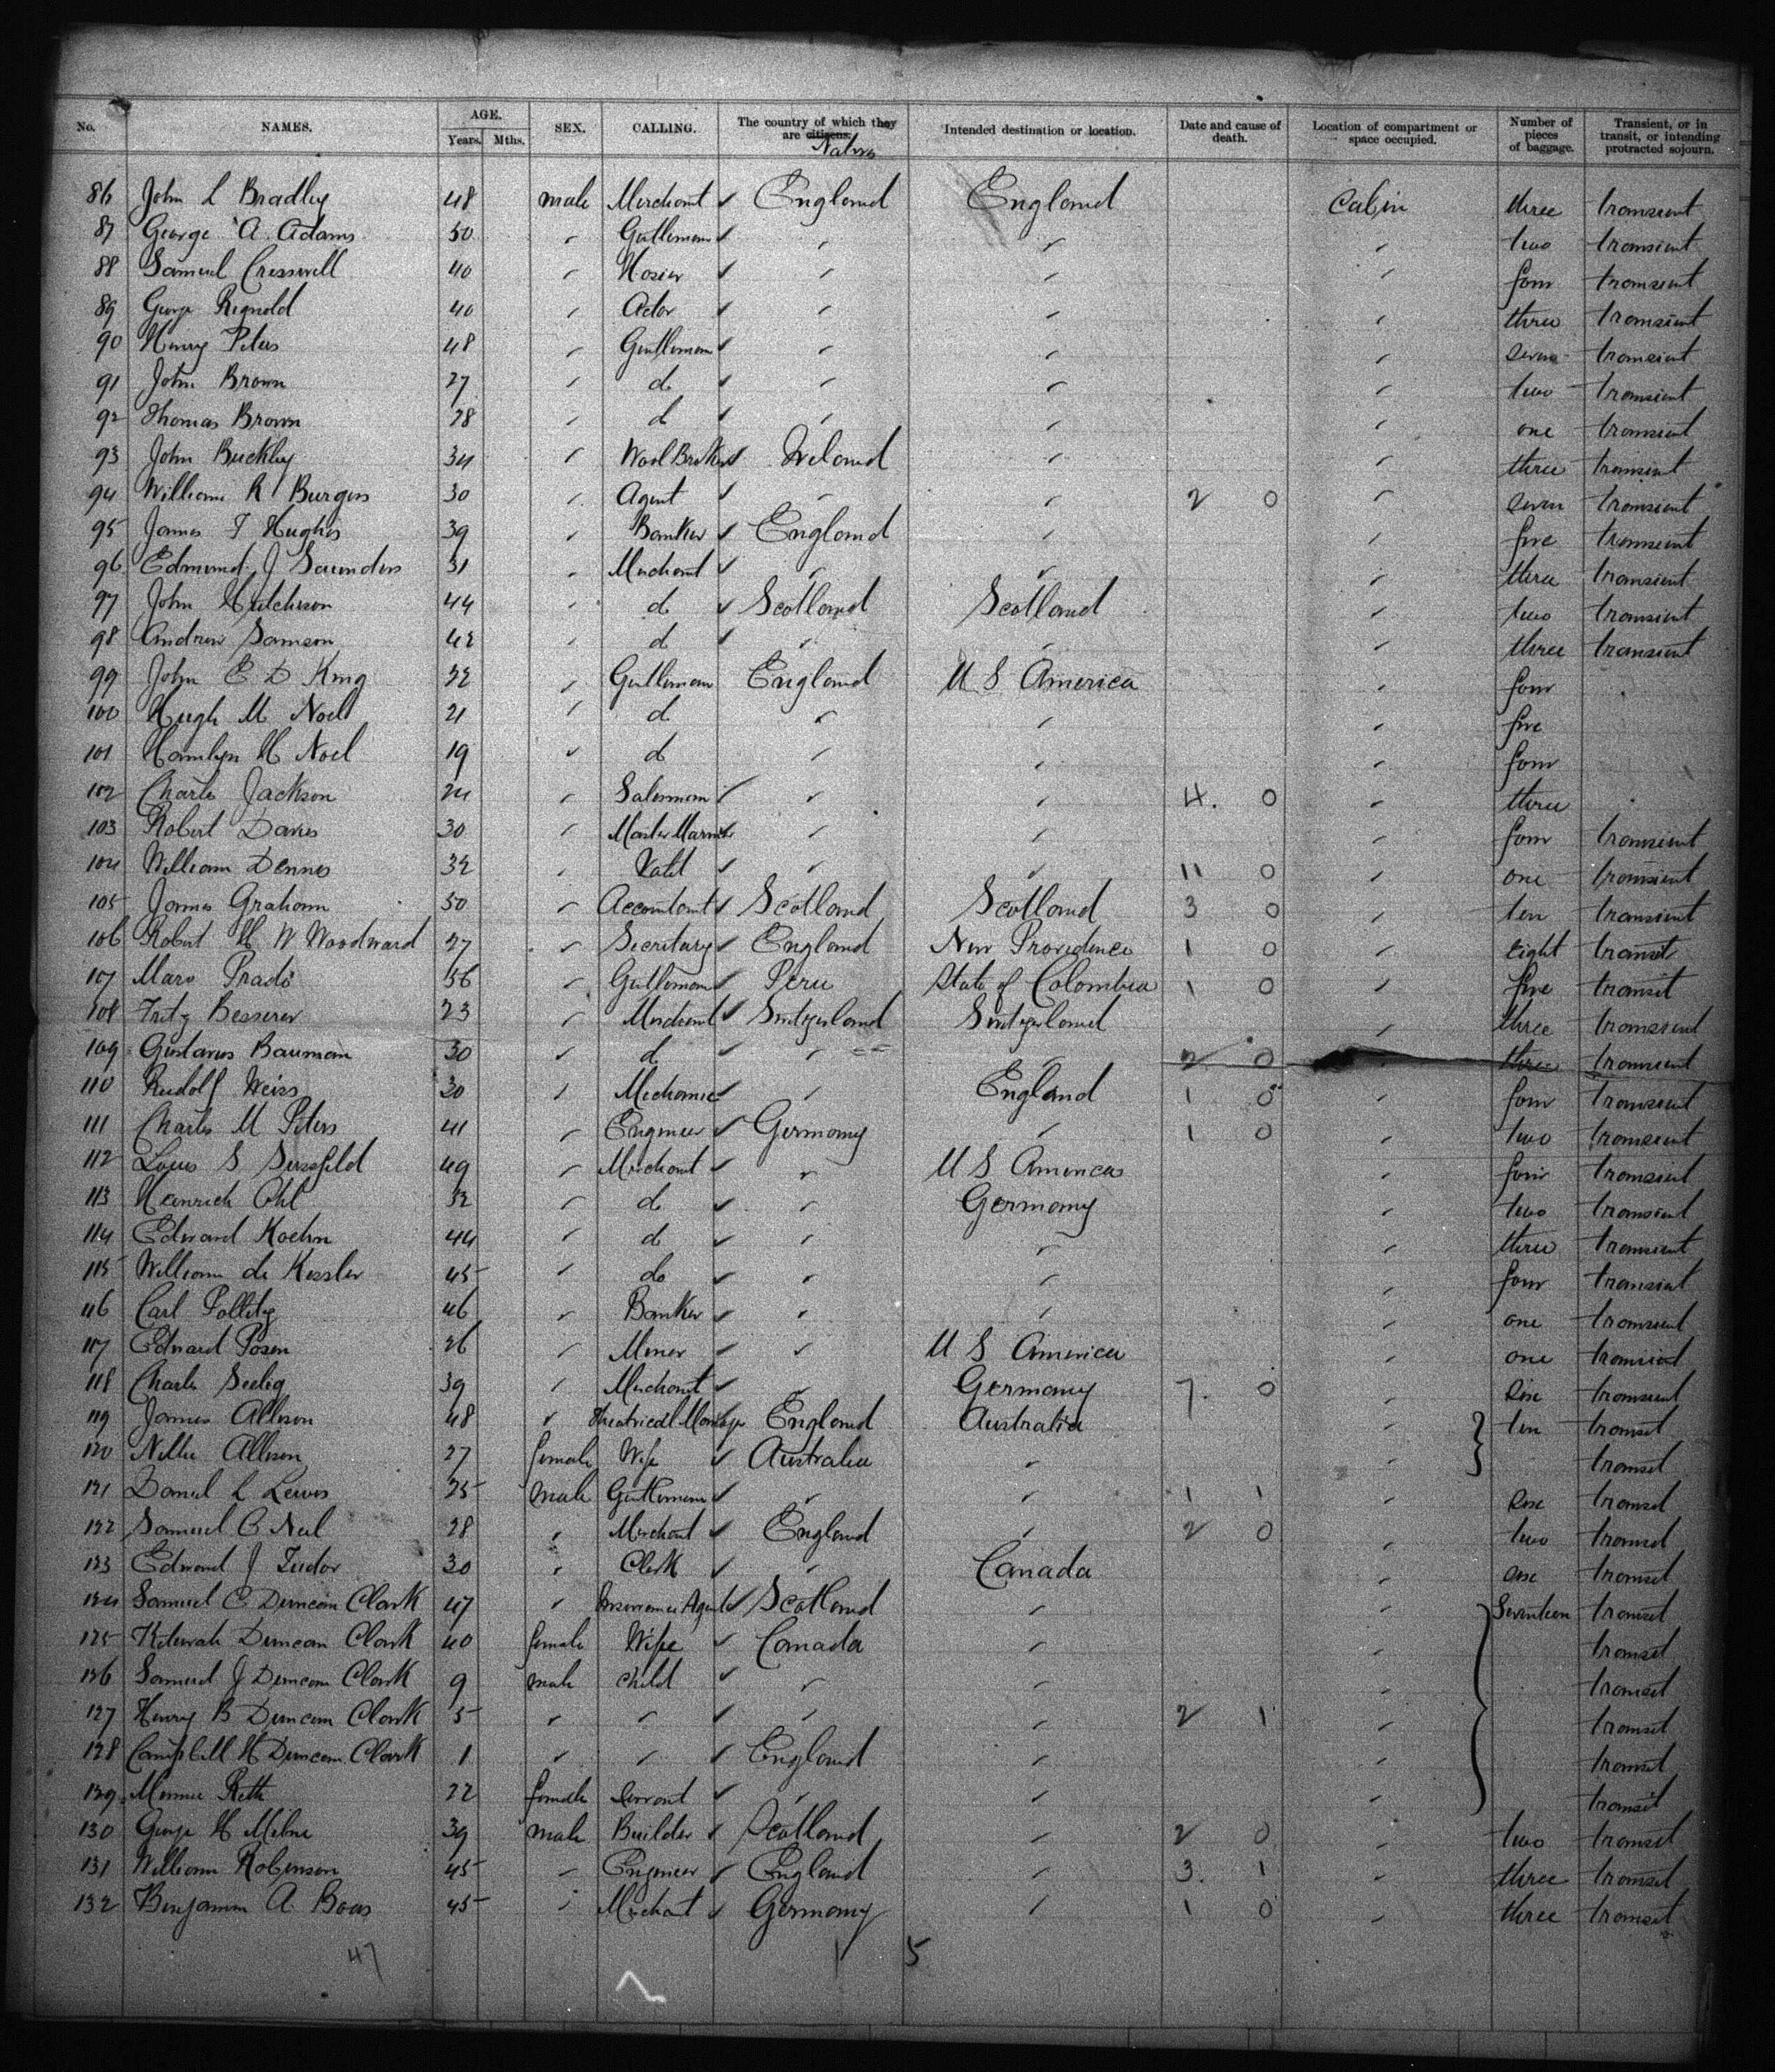 No. NAMES. AGE. Years. Mths. SEX. CALLING. The country of which they are citizens. Natives Intended destination or location. Date and cause of death. Location of compartment or space occupied. Number of pieces of baggage. Transient, or in transit, or intending protracted sojourn.
86 John L Bradley 48 male Merchant ✓ England England Cabin three transient
87 George A. Adams 50 " Gentleman ✓ " " " two transient
88 Samuel Cresswell 40 " Hosier ✓ " " " four transient
89 George Rignold 40 " Actor ✓ " " " three transient
90 Henry Peters 48 " Gentleman ✓ " " " seven transient
91 John Brown 27 " do ✓ " " " two transient
92 Thomas Brown 28 " do ✓ " " " one transient
93 John Buckley 34 " Wool Broker ✓ Ireland " " three transient
94 William R Burgess 30 " Agent ✓ " " 2 0 " seven transient
95 James T Hughes 39 " Banker ✓ England " " five transient
96 Edmund J Saunders 31 " Merchant ✓ " " " three transient
97 John Hutcheson 44 " do ✓ Scotland Scotland " two transient
98 Andrew Samson 42 " do ✓ " " " three transient
99 John E D King 32 " Gentleman England U S America " four
100 Hugh M Noel 21 " do " " " five
101 Hamlyn H Noel 19 " do " " " four
102 Charles Jackson 24 " Salesman ✓ " " 4. 0 " three
103 Robert Davies 30 " Master Mariner ✓ " " " four transient
104 William Dennes 32 " Valet ✓ " " 11 0 " one transient
105 James Graham 50 " Accountant ✓ Scotland Scotland 3 0 " ten transient
106 Robert H W Woodward 27 " Secretary ✓ England New Providence 1 0 " eight transit
107 Maro Prado 56 " Gentleman ✓ Peru State of Colombia 1 0 " five transit
108 Fritz Besserer 23 " Merchant ✓ Switzerland Switzerland " three transient
109 Gustavus Bauman 30 " do ✓ " " 2 0 " three transient
110 Rudolf Weiss 30 " Mechanic ✓ " England 1 0 " four transient
111 Charles M Peters 41 " Engineer ✓ Germany " 1 0 " two transient
112 Louis S 49 " Merchant ✓ " U S America " four transient
113 Heinrich Ohl 32 " do ✓ " Germany " two transient
114 Edward Koehn 44 " do ✓ " " " three transient
115 William de Kessler 45 " do ✓ " " " four transient
116 Carl Pollitz 46 " Banker ✓ " " " one transient
117 Edward Posen 26 " Miner ✓ " U S America " one transient
118 Charles Seelig 39 " Merchant ✓ " Germany 7. 0 " transient
119 James Allison 48 " Theatrical Manager England Australia " ten transit
120 Nellie Allison 27 female Wife ✓ Australia " " transit
121 Daniel L Lewis 25 male Gentleman ✓ " " 1 1 " transit
122 Samuel C Neil 28 " Merchant ✓ England " 2 0 " two transit
123 Edward J Tudor 30 " Clerk ✓ " Canada " one transit
124 Samuel C Duncan Clark 47 " Insurance Agent ✓ Scotland " " Seventeen transit
125 Duncan Clark 40 female Wife ✓ Canada " " transit
126 Samuel J Duncan Clark 9 male child ✓ " " " transit
127 Henry B Duncan Clark 5 " " ✓ " " 2 1 " transit
128 Campbell H Duncan Clark 1 " " ✓ England " " transit
129 Minnie 22 female Servant ✓ " " " transit
130 George H Milne 39 male Builder ✓ Scotland " 2 0 " two transit
131 William Robinson 45 " Engineer ✓ England " 3. 1 " three transit
132 Benjamin A Boas 45 " Merchant ✓ Germany " 1 0 " three transit
47 1 5